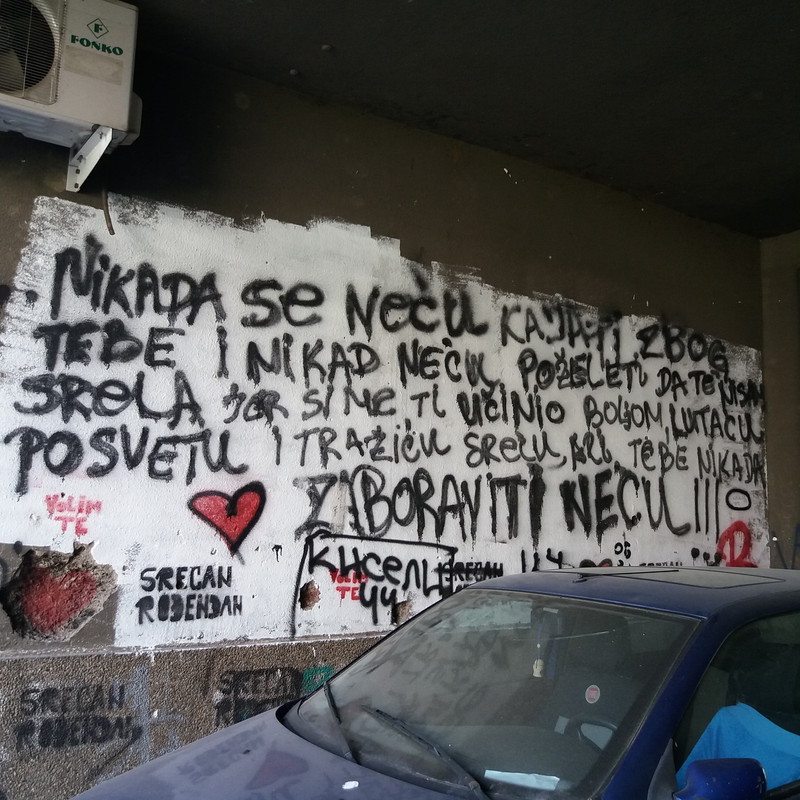 F
FONKO
NiKADA Se NeĆU KAJATI ZBOG
TEBE I NIKAD NEĆU POŽELETI DA TE NISAM
SRELA JER SI ME TI UČINIO BOLJOM, LUTAĆU
PO SVETU I TRAŽIĆU SREĆU, ALI TEBE NIKADA
ZABORAVITI NEĆU!!!
VOLIM
TE
SREĆAN
ROĐENDAN
КИСЕЛИ
ЧЧ
VOLIM
TE
SREĆAN
06
B
SREĆAN
ROĐENDAN
SREĆAN